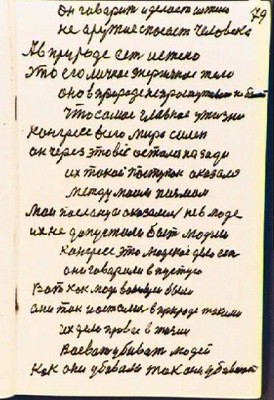 он говарит и делает истино 59
не аружие спасет Человека
А в природе сет истено
это его личное энержичное тело
оно в природе не пропустит не быт
что самое главное у жизни
Конгресс всего мира силен
он через это всё остался на зади
их такой поступок оказался
между моим писмом
Маи посланцы оказались не в моде
их не допустили быт модыми
Конгресс это людское дело сел
они говарили в пустую
Вот как люди воюющи были
они так и остались в природе такими
их дело провое в жизни
Воеват убиват людей
Как они убевали так они убевают